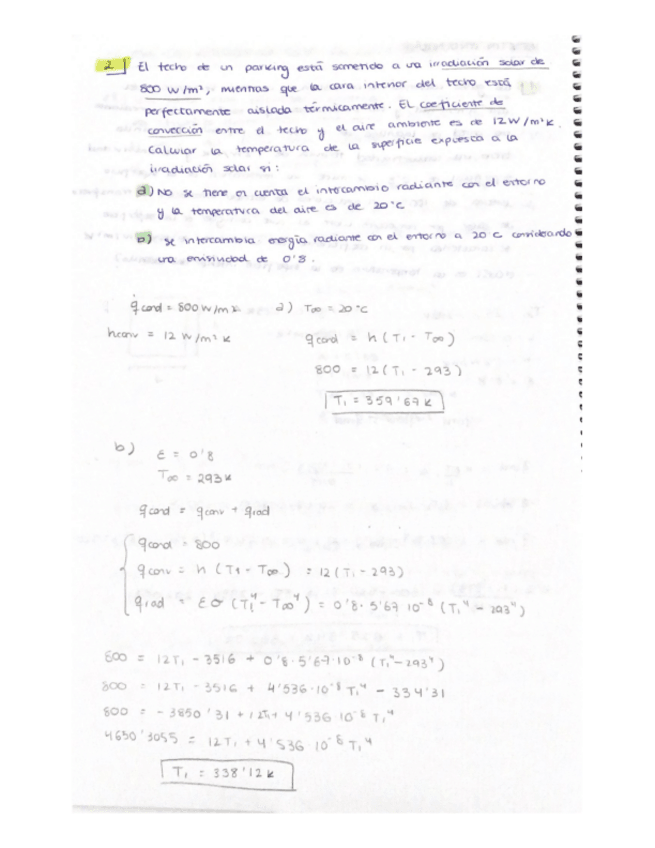 2 El techo de un parking está sometido a una irradiación solar de
800 W/m², mientras que la cara interior del techo está
perfectamente aislada térmicamente. El coeficiente de
convección entre el techo y el aire ambiente es de 12 W/m²K.
Calcular la temperatura de la superficie expuesta a la
irradiación solar si:
a) No se tiene en cuenta el intercambio radiante con el entorno
y la temperatura del aire es de 20°C
b) se intercambia energía radiante con el entorno a 20 C considerando
una emisividad de 0'8.
q̇cond = 800 W/m² a) T∞ = 20°C
hconv = 12 W/m² K
qcond = h (T₁ - T∞)
800 = 12 (T₁ - 293)
T₁ = 359'67 K
b) ε = 0'8
T∞ = 293 K
qcond = qconv + qrad
qcond = 800
qconv = h (T₁ - T∞) = 12 (T₁ - 293)
qrad = εσ (T₁⁴ - T∞⁴) = 0'8 · 5'67 · 10⁻⁸ (T₁⁴ - 293⁴)
800 = 12T₁ - 3516 + 0'8 · 5'67 · 10⁻⁸ (T₁⁴ - 293⁴)
800 = 12T₁ - 3516 + 4'536 · 10⁻⁸ T₁⁴ - 334'31
800 = - 3850'31 + 12T₁ + 4'536 10⁻⁸ T₁⁴
4650'3055 = 12T₁ + 4'536 10⁻⁸ T₁⁴
T₁ = 338'12 K